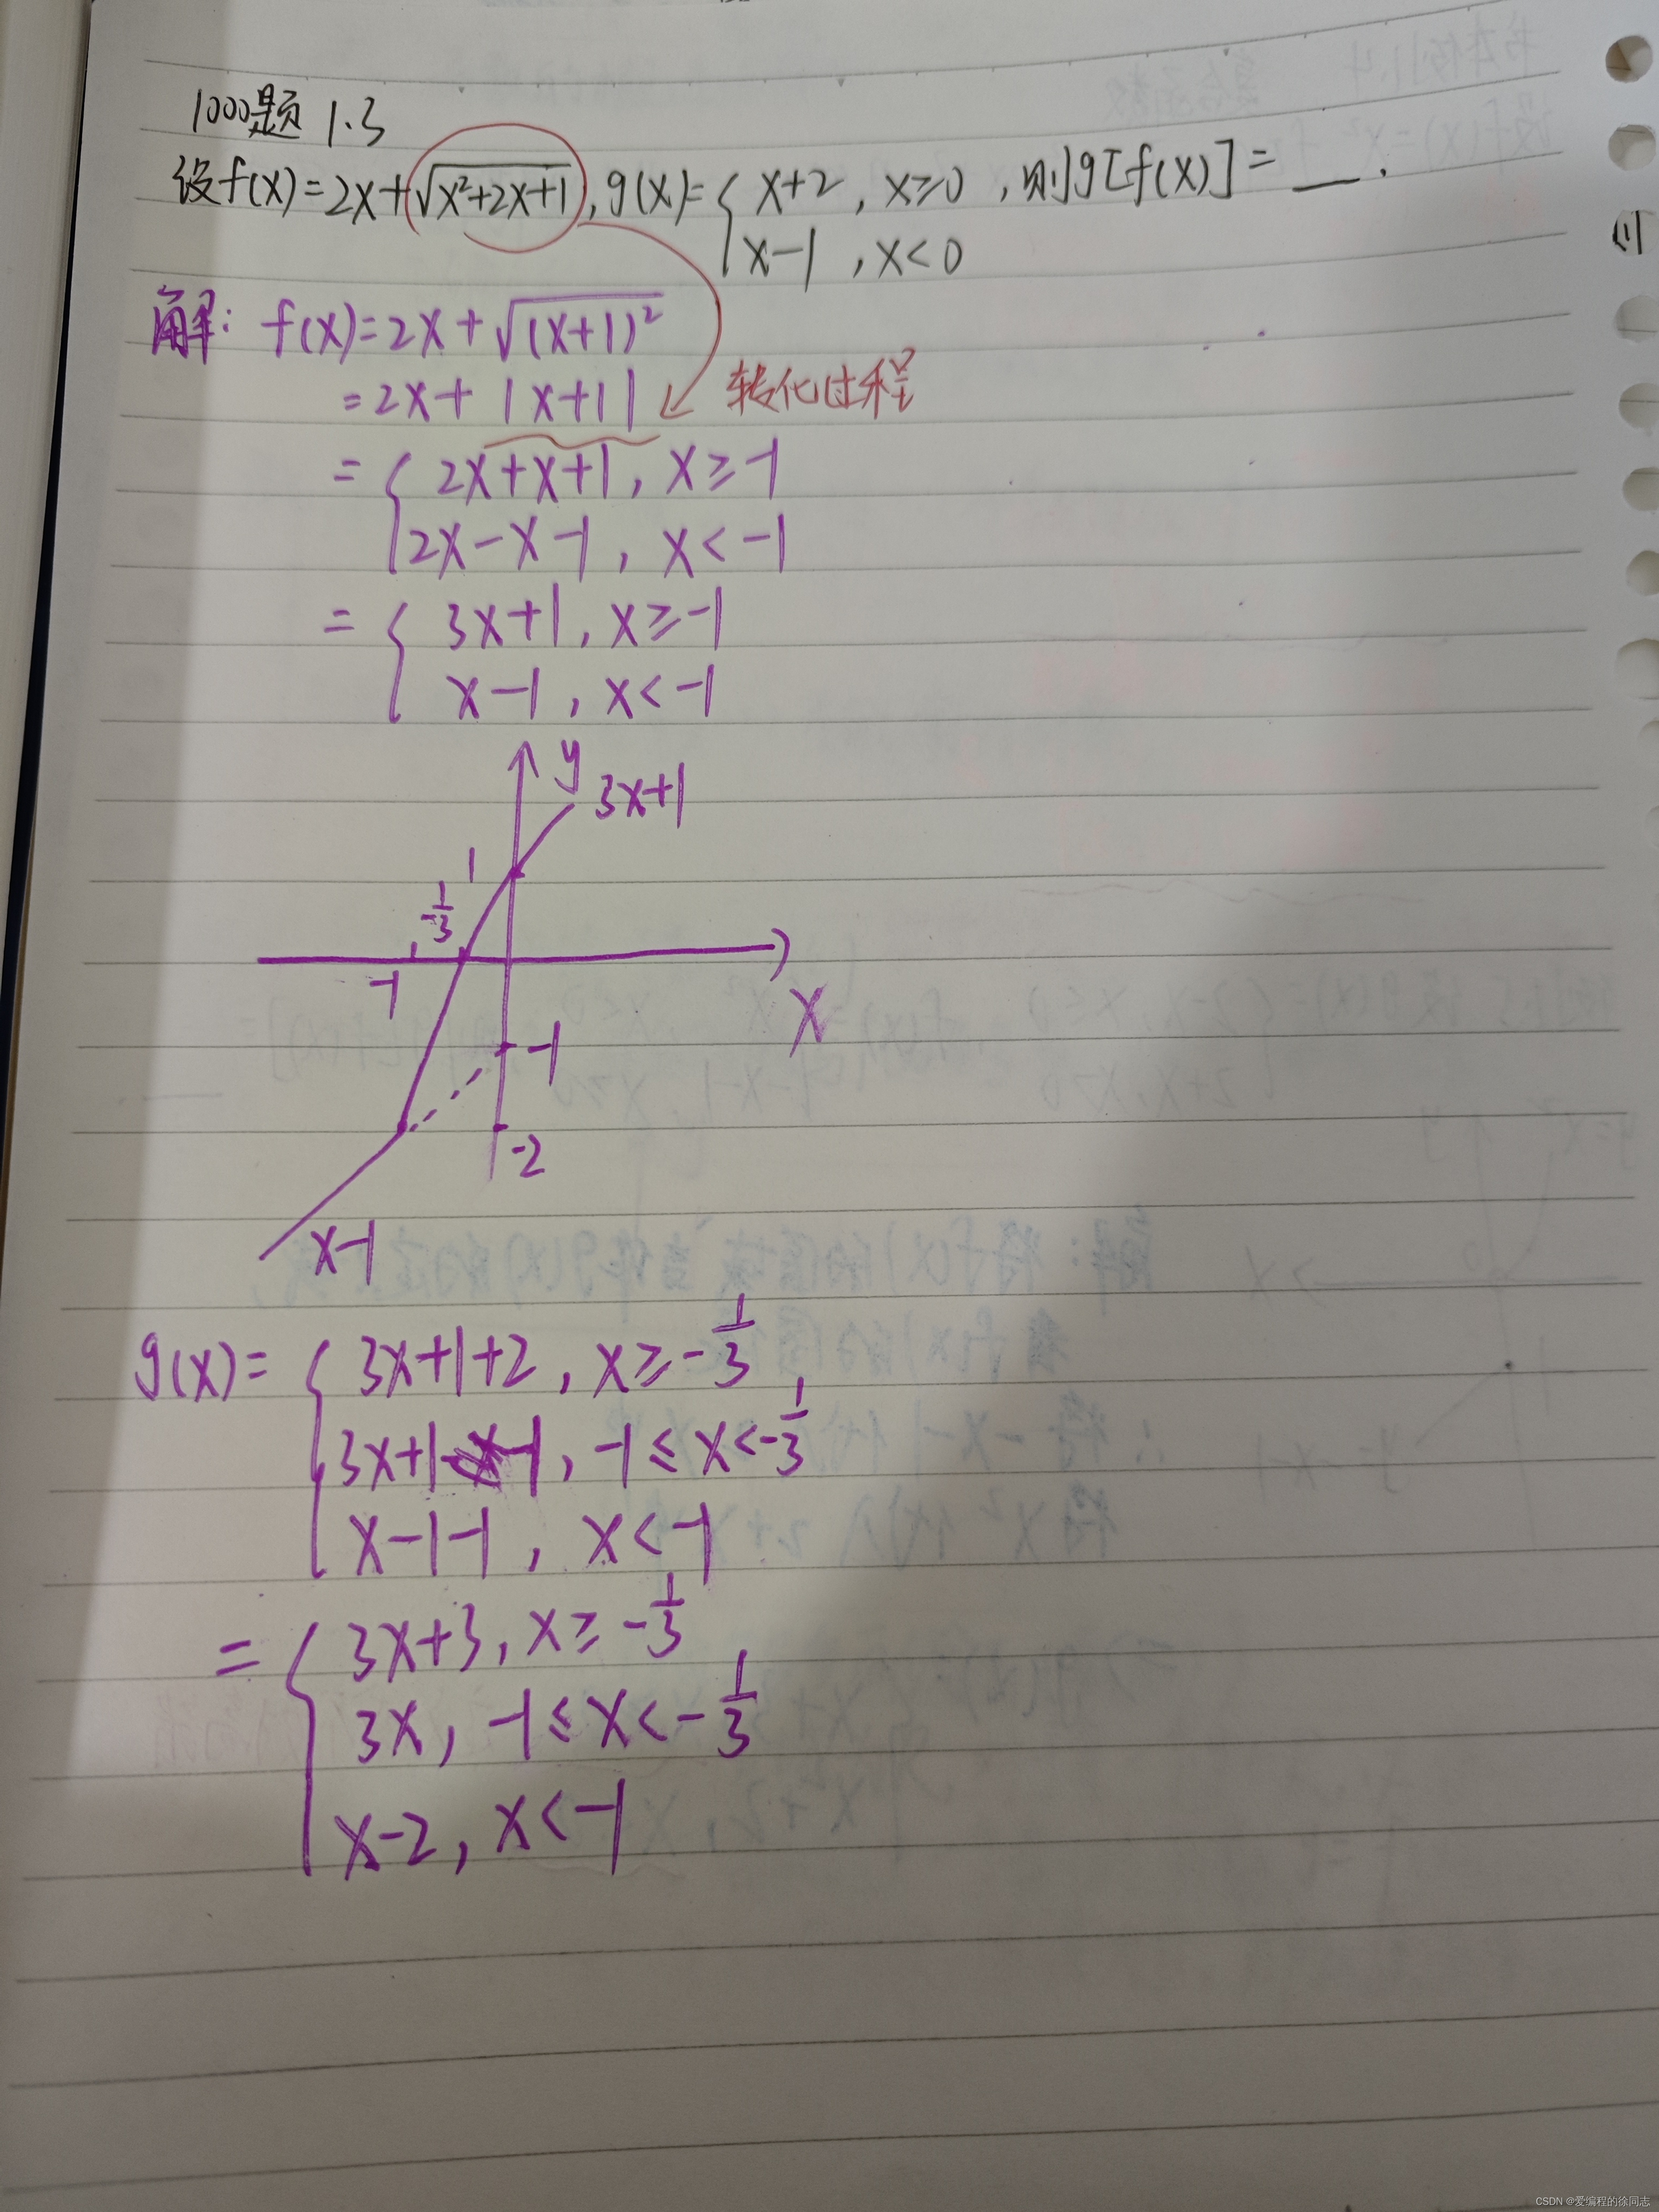 1000题 1.3
设f(x)=2x+√(x²+2x+1), g(x)={ x+2, x≥0 ,则g[f(x)]=__.
x-1, x<0
解: f(x)=2x+√(x+1)²
=2x+|x+1| 转化过程
={ 2x+x+1, x≥-1
2x-x-1, x<-1
={ 3x+1, x≥-1
x-1, x<-1
y
3x+1
1
-1/3
-1
x
-1
-2
x-1
g(x)={ 3x+1+2, x≥-1/3
3x+1-1, -1≤x<-1/3
x-1-1, x<-1
={ 3x+3, x≥-1/3
3x, -1≤x<-1/3
x-2, x<-1
CSDN @爱编程的徐同志